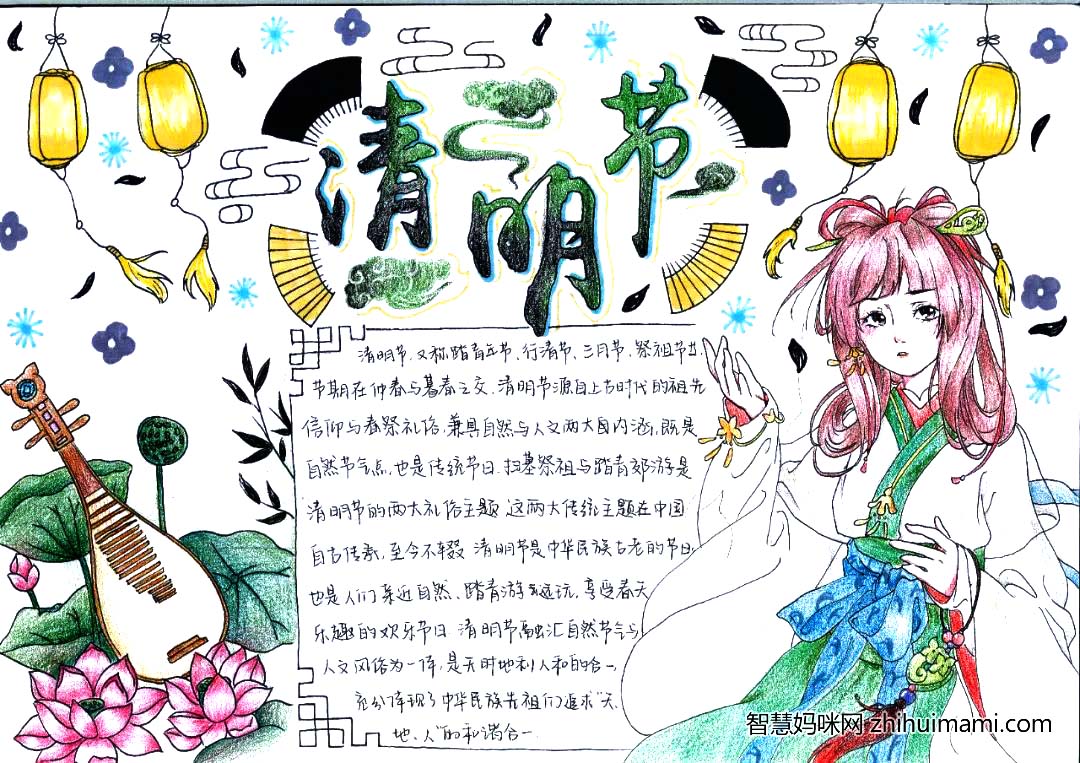 清明节
清明节,又称踏青节、行清节、三月节、祭祖节节,
节期在仲春与暮春之交.清明节源自上古时代的祖先
信仰与春祭礼俗,兼具自然与人文两大内涵,既是
自然节气点,也是传统节日.扫墓祭祖与踏青郊游是
清明节的两大礼俗主题.这两大传统主题在中国
自古传承,至今不辍.清明节是中华民族古老的节日,
也是人们亲近自然、踏青游玩,享受春天
乐趣的欢乐节日.清明节融汇自然节气与
人文风俗为一体,是天时地利人和的合一,
充分体现了中华民族先祖们追求“天、
地、人”的和谐合一.
智慧妈咪网 zhihuimami.com